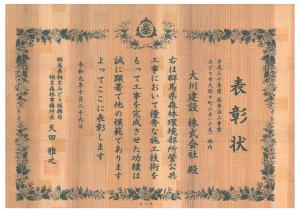 表彰状
大川建設 株式会社 殿
右は群馬県森林環境部所管公共
工事において優秀な施工技術を
もって工事を完成させた功績は
誠に顕著で他の模範であります
よってここに表彰します
令和元年十月二十九日
群馬県桐生みどり振興局
桐生森林事務所長 天田 雅之